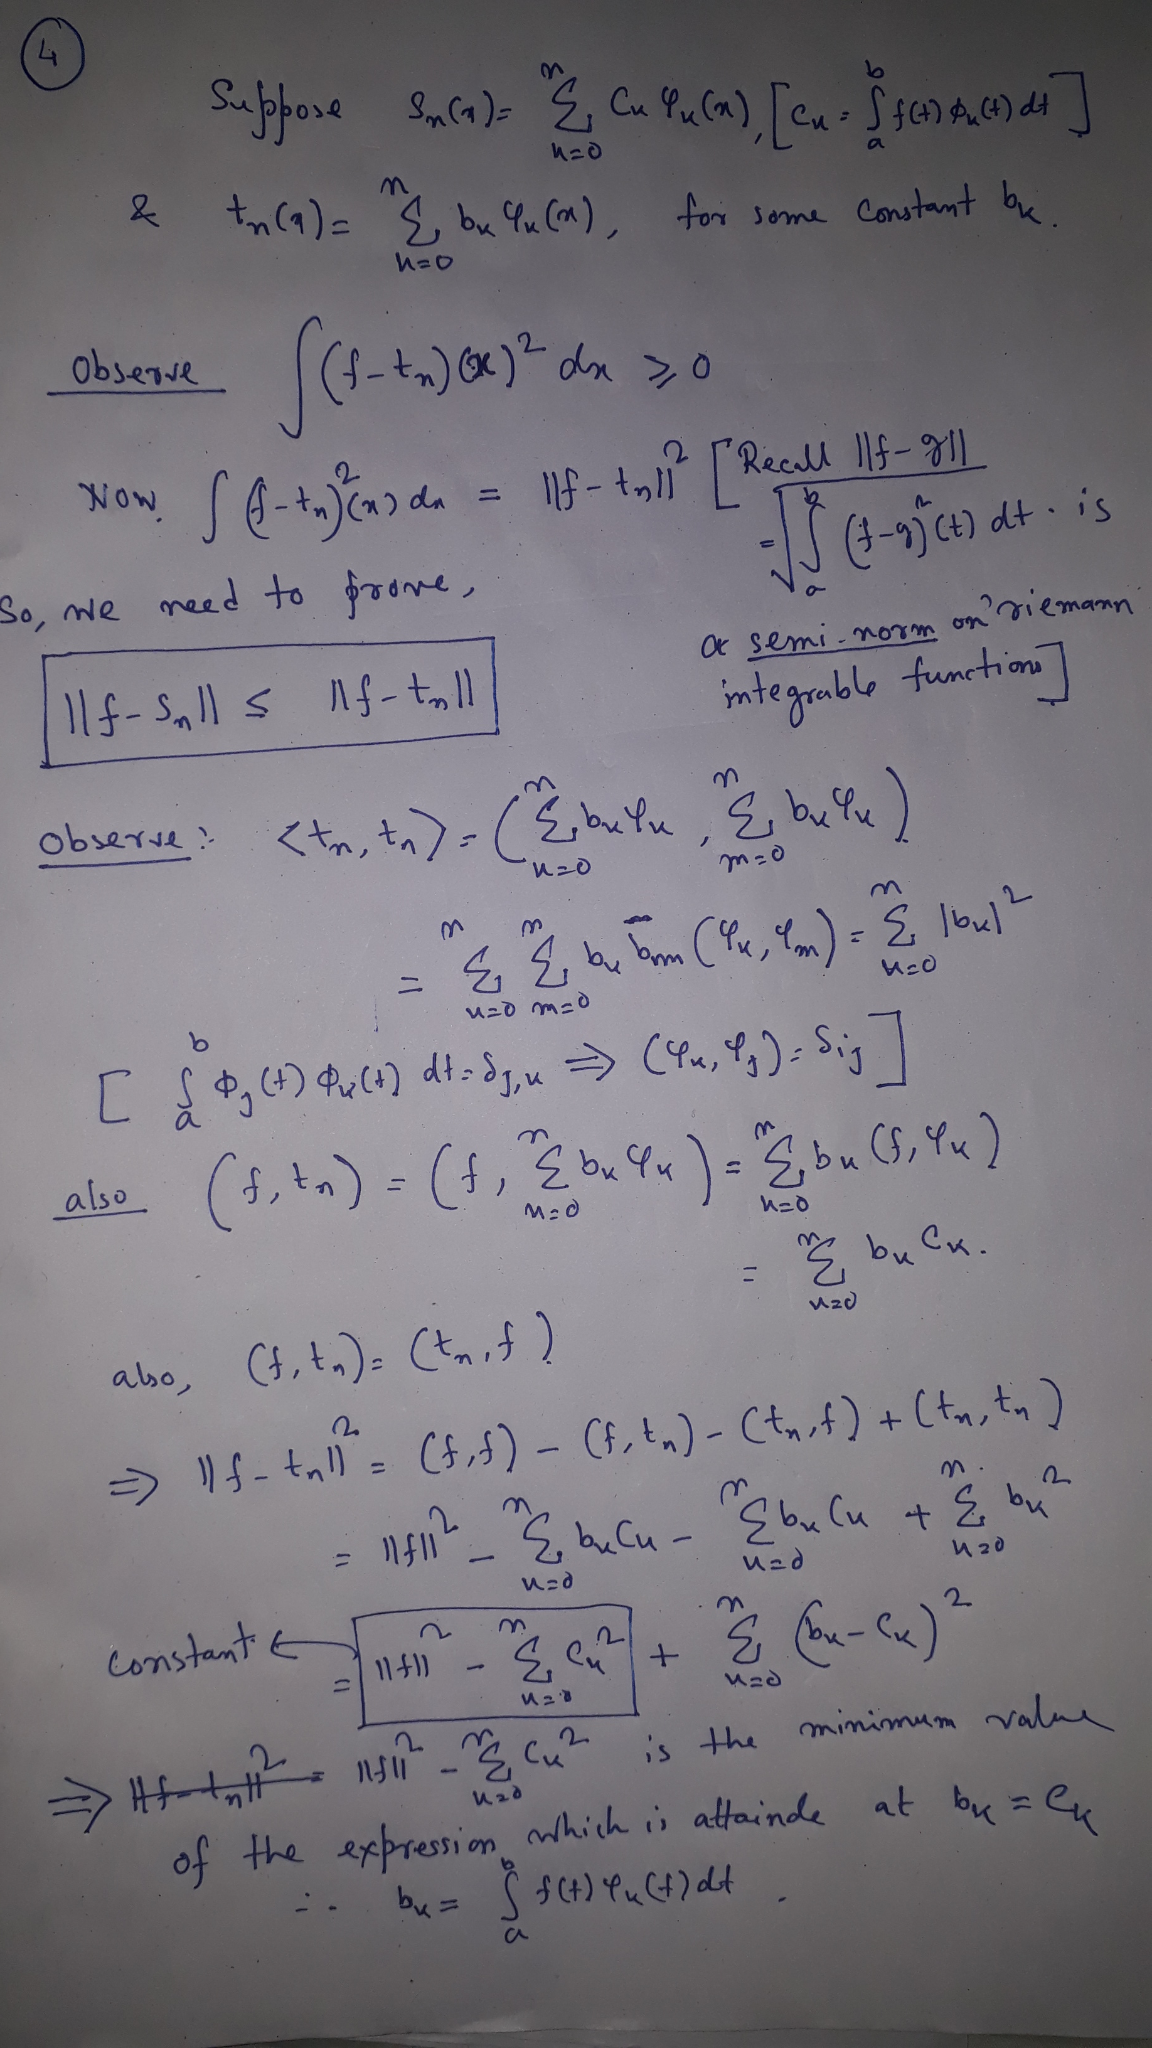 4
Suppose Sₙ(x) = Σ_{k=0}^{n} Cₖ φₖ(x), [Cₖ = ∫_a^b f(t) ϕₖ(t) dt]
& tₙ(x) = Σ_{k=0}^{n} bₖ φₖ(x), for some constant bₖ.
Observe ∫(f-tₙ)(x)² dx ⩾ 0
Now, ∫(f-tₙ)²(x) dx = ||f-tₙ||² [Recall ||f-g||
= √∫_a^b (f-g)²(t) dt. is
So, we need to prove,
a semi-norm on riemann
||f-Sₙ|| ≤ ||f-tₙ||
integrable functions]
Observe: <tₙ, tₙ> = (Σ_{k=0}^{n} bₖφₖ, Σ_{m=0}^{n} bₖφₖ)
= Σ_{k=0}^{n} Σ_{m=0}^{n} bₖ b̄ₘ (φₖ, φₘ) = Σ_{k=0}^{n} |bₖ|²
[∫_a^b ϕⱼ(t) ϕₖ(t) dt = δⱼ,ₖ ⇒ (φₖ, φⱼ) = δᵢⱼ]
also (f, tₙ) = (f, Σ_{k=0}^{n} bₖφₖ) = Σ_{k=0}^{n} bₖ (f, φₖ)
= Σ_{k=0}^{n} bₖ Cₖ.
also, (f, tₙ) = (tₙ, f)
⇒ ||f-tₙ||² = (f,f) - (f,tₙ) - (tₙ,f) + (tₙ,tₙ)
= ||f||² - Σ_{k=0}^{n} bₖCₖ - Σ_{k=0}^{n} bₖCₖ + Σ_{k=0}^{n} bₖ²
constant ← = ||f||² - Σ_{k=0}^{n} Cₖ² + Σ_{k=0}^{n} (bₖ-Cₖ)²
⇒ ||f-tₙ||² = ||f||² - Σ_{k=0}^{n} Cₖ² is the minimum value
of the expression which is attainde at bₖ = Cₖ
∴ bₖ = ∫_a^b f(t) φₖ(t) dt.